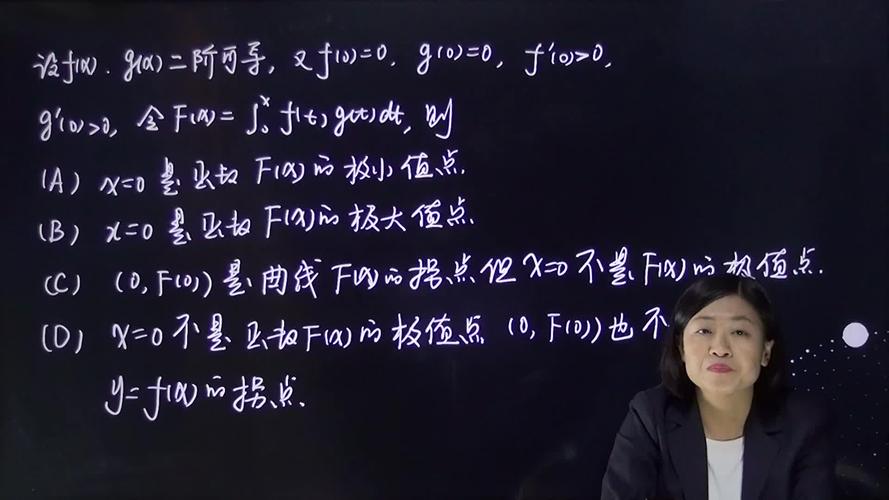 设f(x). g(x)二阶可导, 又f(0)=0, g(0)=0, f'(0)>0,
g'(0)>0, 令F(x)=∫₀ˣ f(t)g(t)dt, 则
(A) x=0是函数F(x)的极小值点.
(B) x=0是函数F(x)的极大值点.
(C) (0, F(0))是曲线F(x)的拐点但x=0不是F(x)的极值点.
(D) x=0不是函数F(x)的极值点 (0, F(0))也不
y=f(x)的拐点.